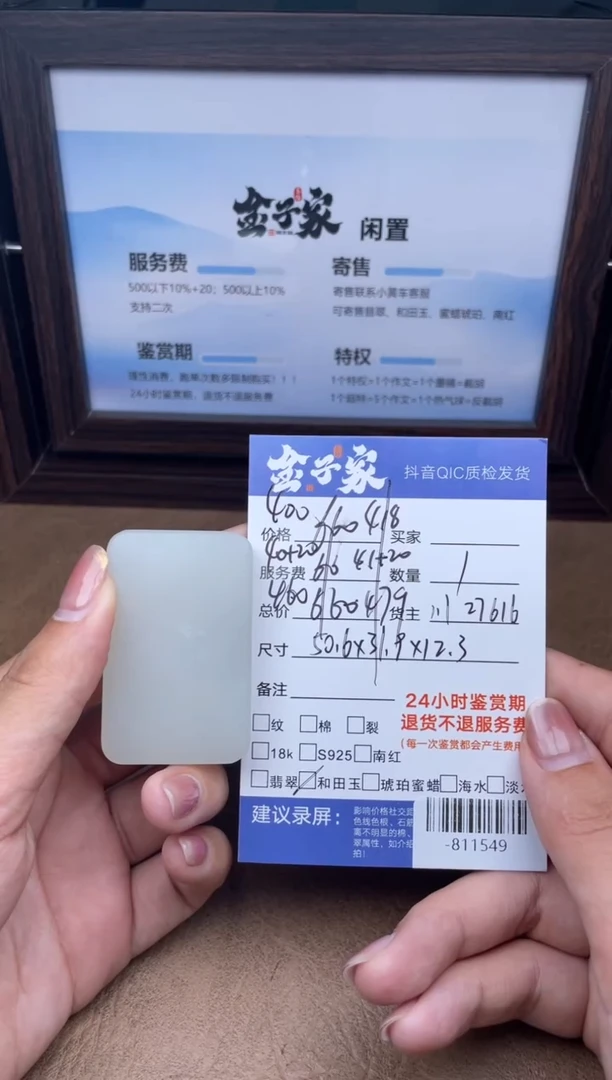 金子家 闲置
服务费
500以下10%+20；500以上10%
支持二次
寄售
寄售联系小黄车客服
可寄售翡翠、和田玉、蜜蜡琥珀、南红
鉴赏期
理性消费，跑单次数多限制购买！！！
24小时鉴赏期，退货不退服务费
特权
金子家 抖音QIC质检发货
价格 400 600 418
买家
服务费 40+20 60 41+20
数量 1
总价 460 660 479
货主 川 27616
尺寸 50.6×31.9×12.3
备注
24小时鉴赏期
退货不退服务费
(每一次鉴赏都会产生费用
纹 棉 裂
18k S925 南红
翡翠 和田玉 琥珀蜜蜡 海水 淡
建议录屏：
影响价格社交距
色线色根，石筋
毫不明显的棉、
翠属性，如介
拍！
-811549